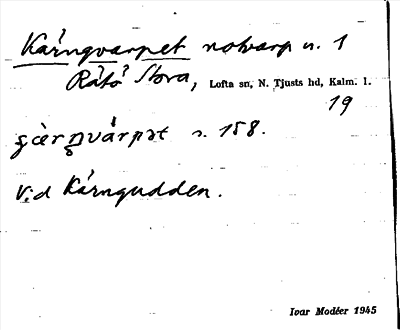 Kärngvarpet notvarp n. 1
Rätö Stora, Lofta sn, N. Tjusts hd, Kalm. l.
19
s. 158.
Vid Kärngudden.
Ivar Modéer 1945